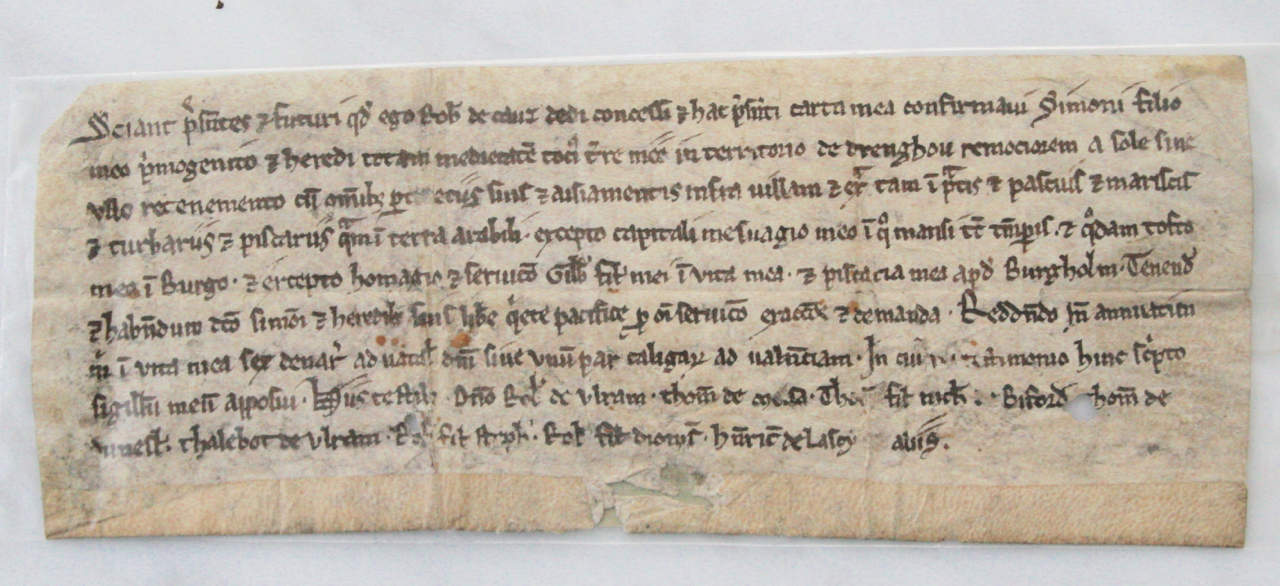 Sciant p'sentes ⁊ futuri qd ego Rob' de caux dedi concessi ⁊ hac p'senti carta mea confirmaui Simoni filio
meo p'mogenito ⁊ heredi totam medietatē toci' t're mee in territorio de drenghou remociorem a sole sine
ullo retenemento cū omībȝ ptinēciis suis ⁊ aisiamentis infra uillam ⁊ ext̃ tam ī p̃tis ⁊ pascuis ⁊ mariscis
⁊ turbariis ⁊ piscariis q̃m ī terra arabili · excepto capitali mesuagio meo ī q' mansi tc̄ tēporis · ⁊ q'dam tofto
meo ī Burgo · ⁊ excepto homagio ⁊ seruicō Gilb' fil' mei ī vita mea · ⁊ piscacia mea apd' Burgholm · Tenend'
⁊ habend' dcō simōi ⁊ heredibȝ suis lib'e q'ete pacifice p om̄i seruicō exaccōe ⁊ demanda · Reddendo īn annuatim
m' ī vita mea sex denar' ad natal' dnī siue vnū par caligarꝝ ad ualenciam · In cui' testimonio huic sc'pto
sigillū meū apposui · Hiis testibȝ · Dn̄o Rob' de vlram · thom̄ de · Tho' fil' · Biford · thom̄ de
thalebot de vlram · Rob' fil' steph' · Rob' fil' dionis' · henric' de Lasey aliis .